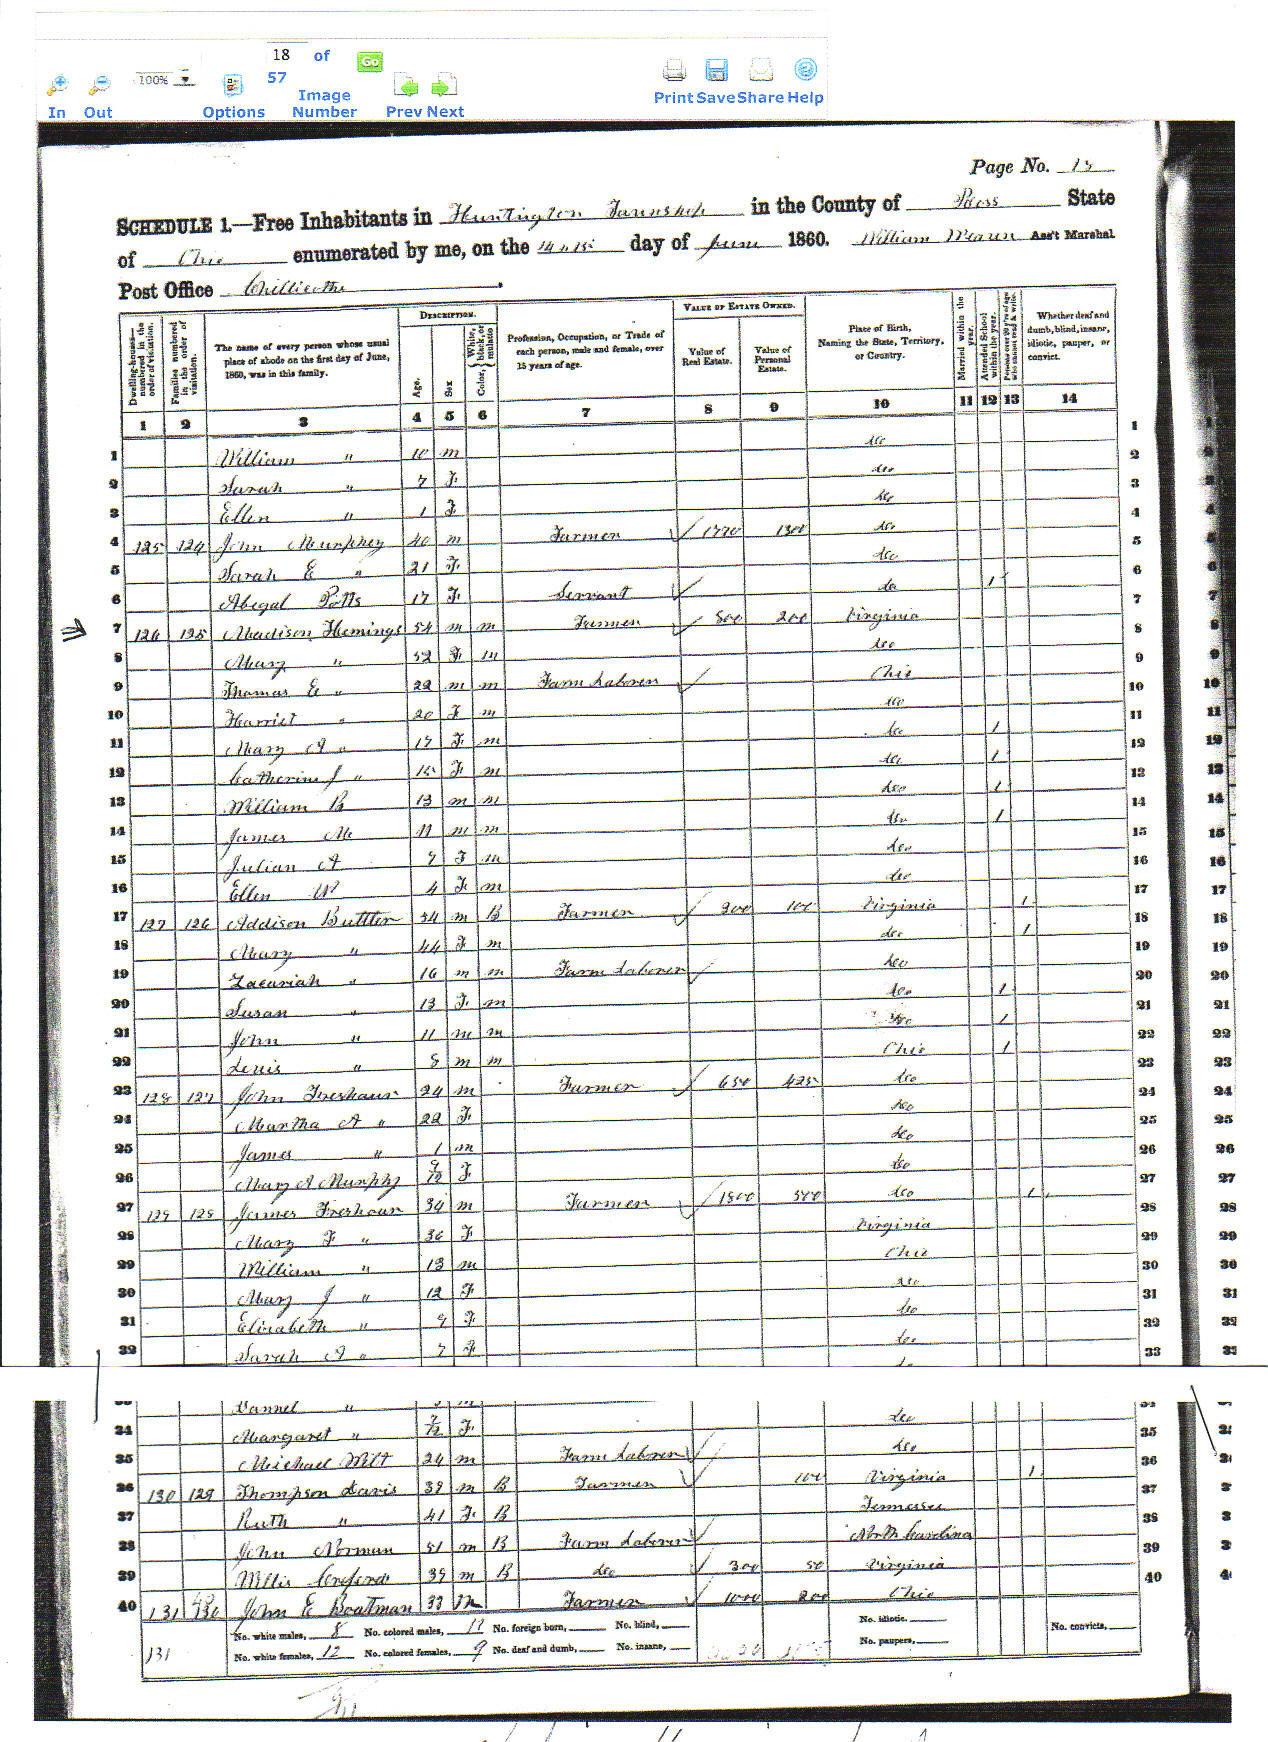 18 of 57 Go
100%
In Out Options Image Number Prev Next Print Save Share Help
Page No. 18
SCHEDULE 1.—Free Inhabitants in Huntington Township in the County of Ross State
of Ohio enumerated by me, on the day of June 1860. William Ass't Marshal
Post Office Chillicothe.
DESCRIPTION. VALUE OF ESTATE OWNED.
Dwelling-houses—numbered in the order of visitation.
Families numbered in the order of visitation.
The name of every person whose usual place of abode on the first day of June, 1860, was in this family.
Age.
Sex
Color, White, black, or mulatto
Profession, Occupation, or Trade of each person, male and female, over 15 years of age.
Value of Real Estate.
Value of Personal Estate.
Place of Birth, Naming the State, Territory, or Country.
Married within the year.
Attended School within the year.
Persons over 20 y'rs of age who cannot read & write.
Whether deaf and dumb, blind, insane, idiotic, pauper, or convict.
1 2 3 4 5 6 7 8 9 10 11 12 13 14
1 William " 10 m do
2 Sarah " 7 F do
3 Ellen " 1 F do
4 125 124 John Murphey 40 m Farmer 1770 1300 do
5 Sarah E " 21 F do
6 Abegal Potts 17 F Servant do 1
7 126 125 Madison Hemings 54 m m Farmer 500 200 Virginia
8 Mary " 52 F m do
9 Thomas E " 22 m m Farm Laborer Ohio
10 Harriet " 20 F m do
11 Mary A " 17 F m do 1
12 Catherine J " 15 F m do 1
13 William B 13 m m do 1
14 James M 11 m m do 1
15 Julian A 7 F m do
16 Ellen W 4 F m do
17 127 126 Addison Buttler 54 m B Farmer 200 100 Virginia 1
18 Mary " 44 F m do 1
19 Zacuriah " 16 m m Farm Laborer do
20 Susan " 13 F m do 1
21 John " 11 m m do 1
22 Lewis " 8 m m Ohio 1
23 128 127 John Freshour 24 m Farmer 650 425 do
24 Martha A " 22 F do
25 James " 1 m do
26 Mary A Murphy F do
27 129 128 James Freshour 34 m Farmer 1500 500 do 1
28 Mary F " 36 F Virginia
29 William " 13 m Ohio
30 Mary J " 12 F do
31 Elizabeth " 9 F do
32 Sarah A " 7 F do
33
34 Margaret " F do
35 Michael Wilt 24 m Farm Laborer do
36 130 129 Thompson Davis 39 m B Farmer 100 Virginia 1
37 Ruth " 41 F B Tennessee
38 John Norman 51 m B Farm Laborer North Carolina
39 Willis 39 m B do 300 50 Virginia
40 131 130 John E Boatman 33 m Farmer 1000 200 Ohio
No. white males, 8 No. colored males, 11 No. foreign born, No. blind, No. idiotic. No. convicts,
131 No. white females, 12 No. colored females, 9 No. deaf and dumb, No. insane, No. paupers,